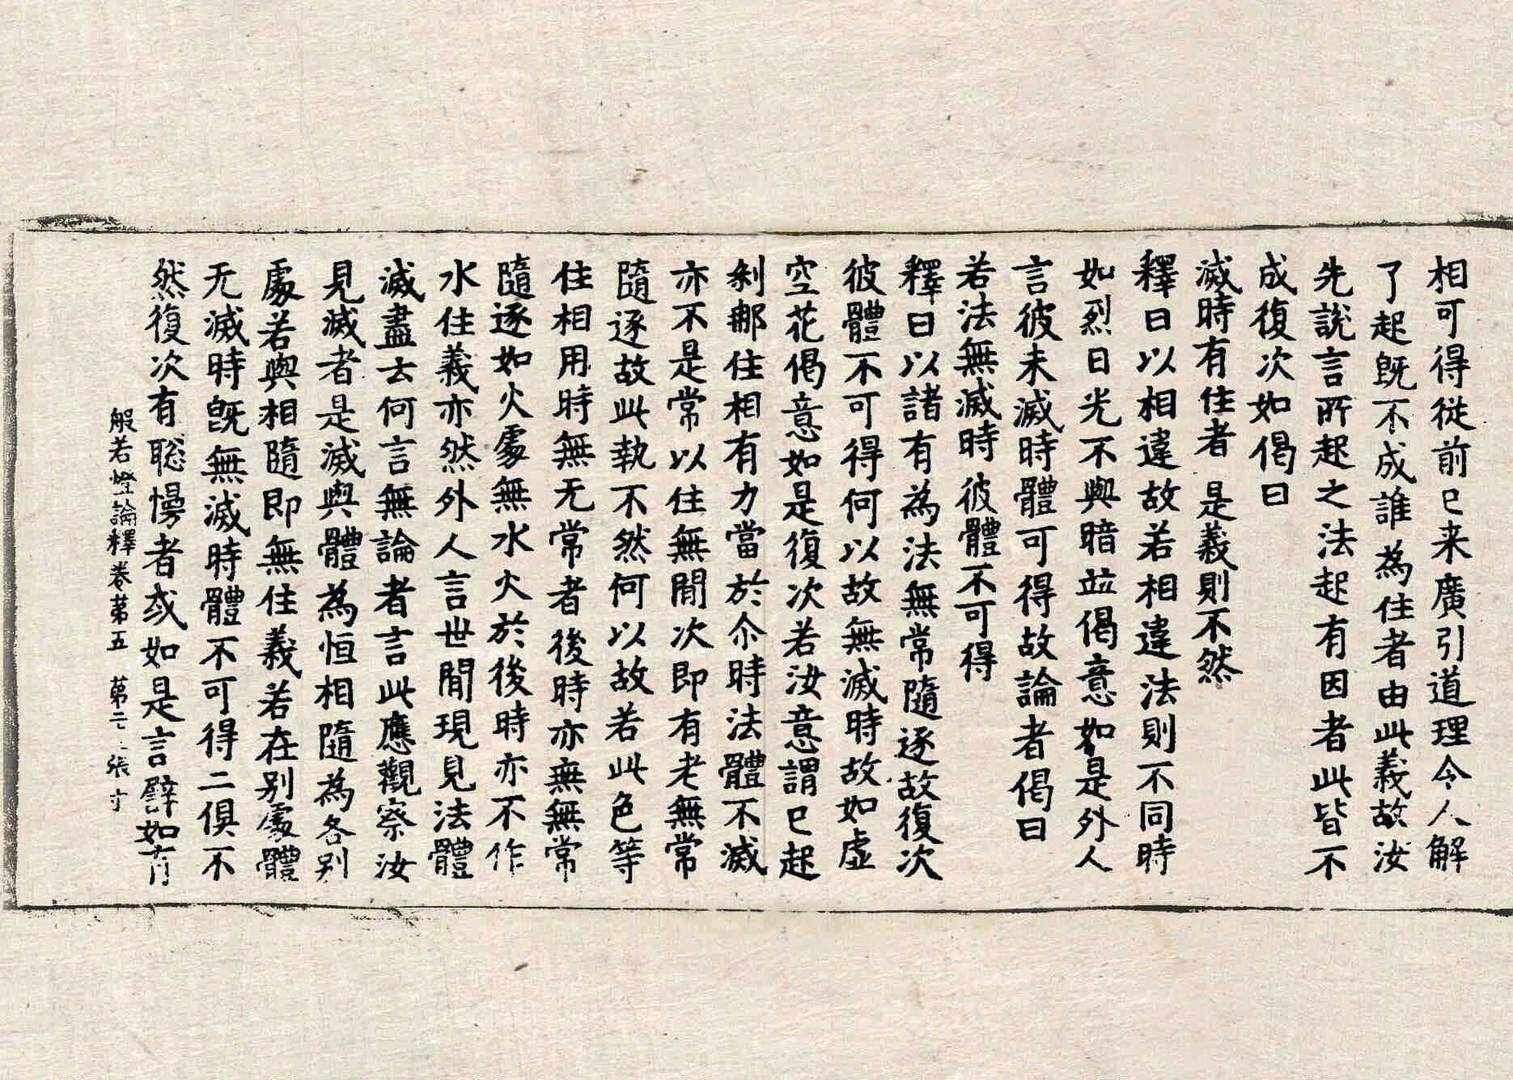 相可得從前已来廣引道理令人解
了起旣不成誰為住者由此義故汝
先說言所起之法起有因者此皆不
成復次如偈曰
滅時有住者 是義則不然
釋曰以相違故若相違法則不同時
如烈日光不與暗並偈意如是外人
言彼未滅時體可得故論者偈曰
若法無滅時彼體不可得
釋曰以諸有為法無常隨逐故復次
彼體不可得何以故無滅時故如虛
空花偈意如是復次若汝意謂已起
剎那住相有力當於尒時法體不滅
亦不是常以住無間次即有老無常
隨逐故此執不然何以故若此色等
住相用時無无常者後時亦無無常
隨逐如火處無水火於後時亦不作
水住義亦然外人言世間現見法體
滅盡去何言無論者言此應觀察汝
見滅者是滅與體為恒相隨為各別
處若與相隨即無住義若在別處體
无滅時旣無滅時體不可得二俱不
然復次有聡慢者或如是言譬如有
般若燈論釋卷第五 第二 張 寸